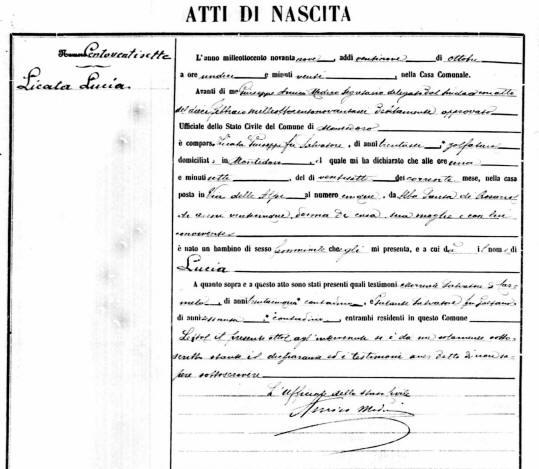 ATTI DI NASCITA
Numero Centoventisette
Licata Lucia
L'anno milleottocento novanta nove, addì ventinove di ottobre
a ore undici e minuti venti, nella Casa Comunale.
Avanti di me Giuseppe Amico Medico Segretario delegato dal Sindaco con atto
del milleottocentonovantasei debitamente approvato
Ufficiale dello Stato Civile del Comune di Montedoro
è comparso Licata Giuseppe fu Salvatore, di anni, zolfataio
domiciliato in Montedoro, il quale mi ha dichiarato che alle ore una
e minuti sette, del dì ventisette del corrente mese, nella casa
posta in Via delle Alpi al numero cinque, da Alba
di anni venticinque, donna di casa, sua moglie e con lui
convivente
è nato un bambino di sesso femminile che egli mi presenta, e a cui dà il nome di
Lucia
A quanto sopra e a questo atto sono stati presenti quali testimoni Salvatore di
di anni, contadino, Salvatore fu Gaetano
di anni, contadino, entrambi residenti in questo Comune
Letto il presente atto agli intervenuti si è da me solamente sotto-
scritto stante il dichiarante ed i testimoni aver detto di non sa-
pere sottoscrivere
L'Ufficiale dello Stato Civile
Amico Medico